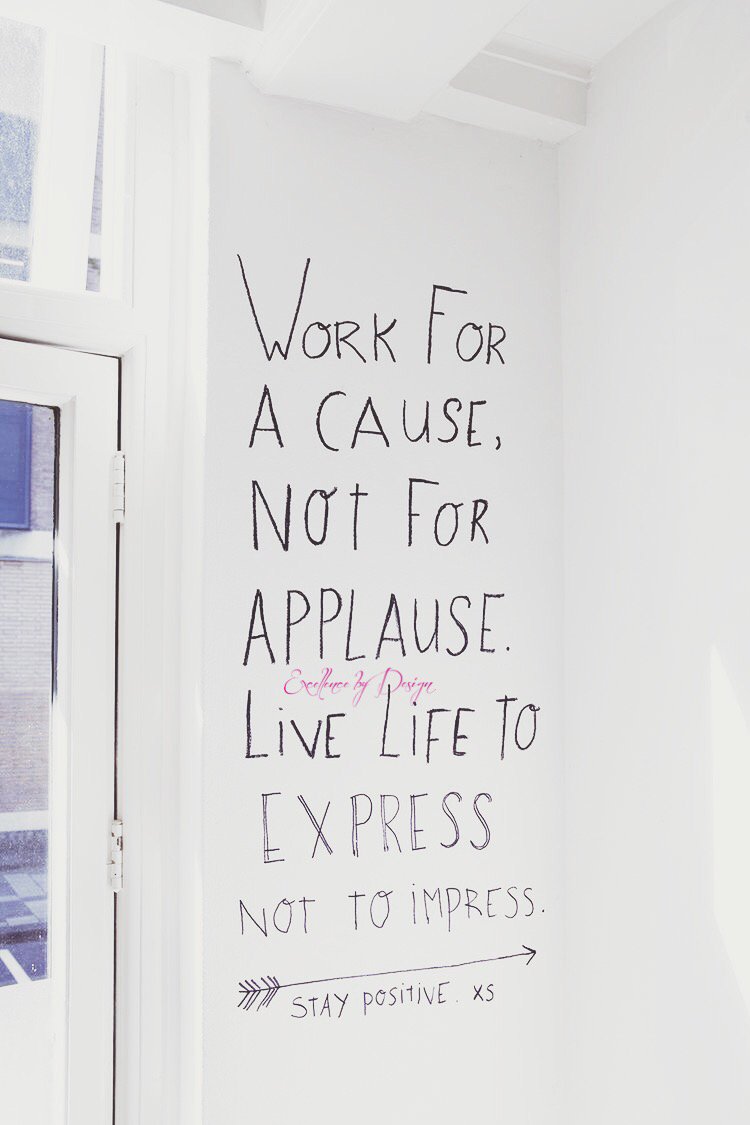 WORK FOR
A CAUSE,
NOT FOR
APPLAUSE.
Excellence by Design
LIVE LIFE TO
EXPRESS
NOT TO IMPRESS.
STAY POSITIVE. XS